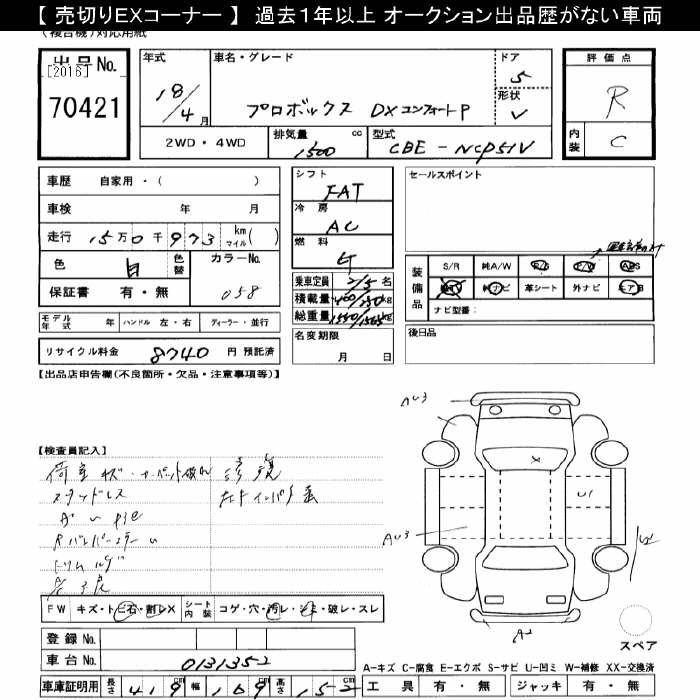 【 売切りEXコーナー 】 過去1年以上 オークション出品歴がない車両
(複合機)対応用紙
出品No.
[2016]
70421
年式
18/4月
車名・グレード
プロボックス DXコンフォートP
ドア
5
形状
V
評価点
R
内装
C
2WD・4WD
排気量
1500 cc
型式
CBE-NCP51V
車歴 自家用・( )
車検 年 月
走行 15万0千973 km マイル( )
色 白 色替 カラーNo.
058
保証書 有・無
モデル年式 年 ハンドル 左・右 ディーラー・並行
リサイクル料金 8740 円 預託済
シフト
FAT
冷房
AC
燃料
G
乗車定員 2/5 名
積載量 400/250 kg
総重量 1540/1565 kg
名変期限
月 日
セールスポイント
装備品
S/R 純A/W P/S P/W ABS
純TV 純ナビ 革シート 外ナビ エアB
ナビ型番:
後日品
【出品店申告欄(不良箇所・欠品・注意事項等)】
【検査員記入】
荷室キズ・カーペット破れ 修復
スタッドレス
FW キズ・ト・ビ石・割レX シート内装 コゲ・穴・汚レ・シミ・破レ・スレ
登録No.
車台No. 0131352
車庫証明用 長さ 419 cm 幅 169 cm 高さ 152 cm
AU3
X
U1
AU3
A2
スペア
A-キズ C-腐食 E-エクボ S-サビ U-凹ミ W-補修 XX-交換済
工具 有・無 ジャッキ 有・無